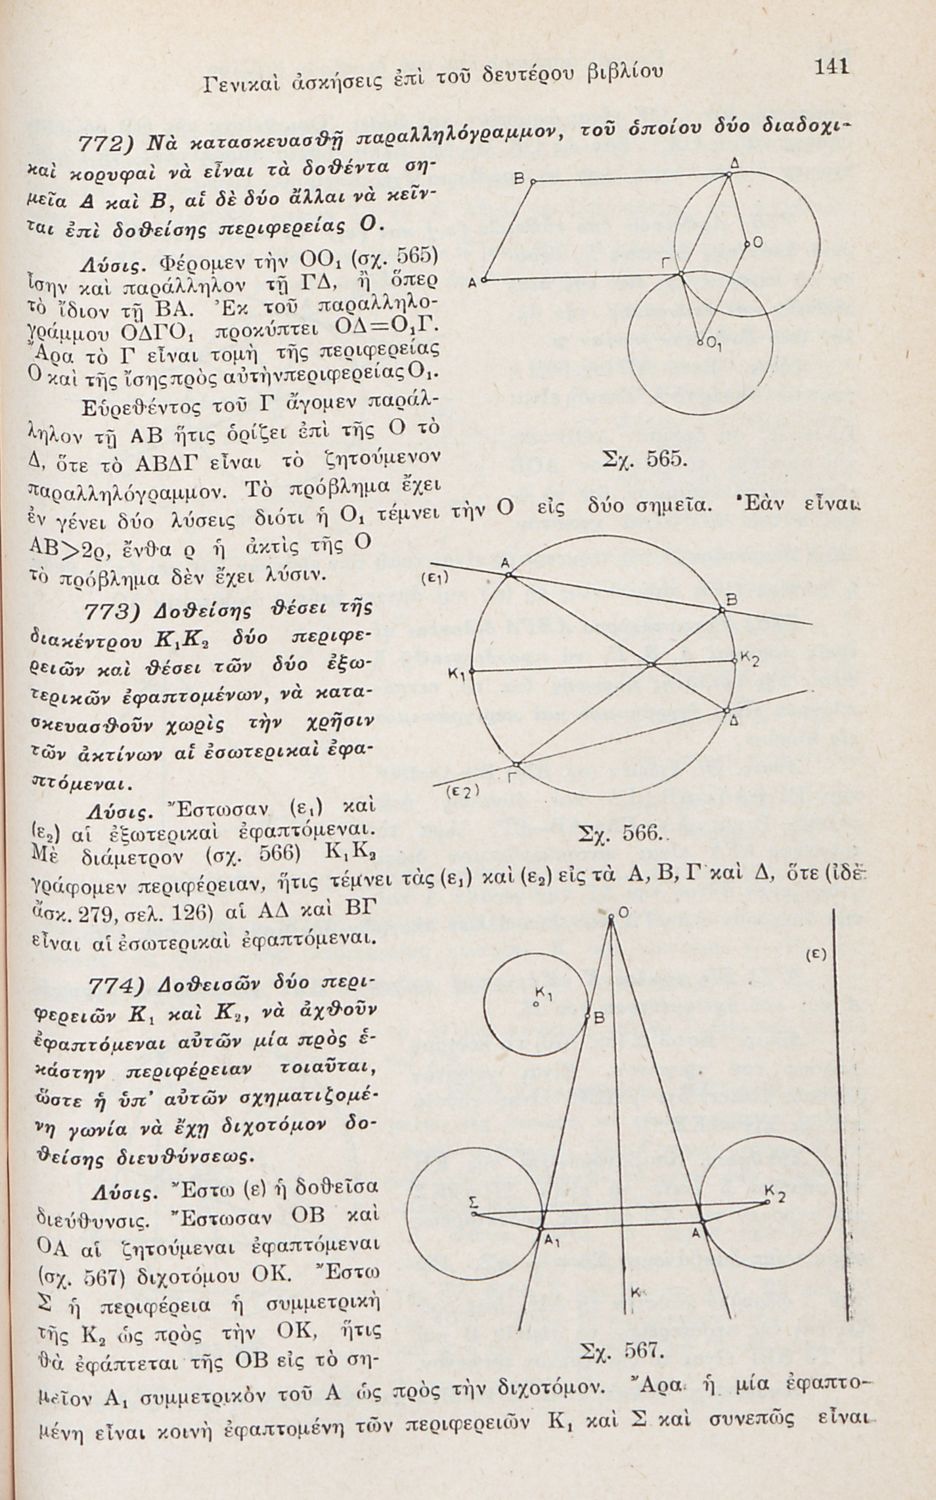 Γενικαὶ ἀσκήσεις ἐπὶ τοῦ δευτέρου βιβλίου
141
772) Νὰ κατασκευασθῇ παραλληλόγραμμον, τοῦ ὁποίου δύο διαδοχι-
καὶ κορυφαὶ νὰ εἶναι τὰ δοθέντα ση-
μεῖα Α καὶ Β, αἱ δὲ δύο ἄλλαι νὰ κεῖν-
ται ἐπὶ δοθείσης περιφερείας Ο.
Λύσις. Φέρομεν τὴν ΟΟ₁ (σχ. 565)
ἴσην καὶ παράλληλον τῇ ΓΔ, ἢ ὅπερ
τὸ ἴδιον τῇ ΒΑ. Ἐκ τοῦ παραλληλο-
γράμμου ΟΔΓΟ₁ προκύπτει ΟΔ=Ο₁Γ.
Ἄρα τὸ Γ εἶναι τομὴ τῆς περιφερείας
Ο καὶ τῆς ἴσης πρὸς αὐτὴν περιφερείας Ο₁.
Εὑρεθέντος τοῦ Γ ἄγομεν παράλ-
ληλον τῇ ΑΒ ἥτις ὁρίζει ἐπὶ τῆς Ο τὸ
Δ, ὅτε τὸ ΑΒΔΓ εἶναι τὸ ζητούμενον
παραλληλόγραμμον. Τὸ πρόβλημα ἔχει
Β
Δ
Ο
Γ
Α
Ο₁
Σχ. 565.
ἐν γένει δύο λύσεις διότι ἡ Ο₁ τέμνει τὴν Ο εἰς δύο σημεῖα. Ἐὰν εἶναι
ΑΒ>2ρ, ἔνθα ρ ἡ ἀκτὶς τῆς Ο
τὸ πρόβλημα δὲν ἔχει λύσιν.
773) Δοθείσης θέσει τῆς
διακέντρου Κ₁Κ₂ δύο περιφε-
ρειῶν καὶ θέσει τῶν δύο ἐξω-
τερικῶν ἐφαπτομένων, νὰ κατα-
σκευασθοῦν χωρὶς τὴν χρῆσιν
τῶν ἀκτίνων αἱ ἐσωτερικαὶ ἐφα-
πτόμεναι.
Λύσις. Ἔστωσαν (ε₁) καὶ
(ε₂) αἱ ἐξωτερικαὶ ἐφαπτόμεναι.
Μὲ διάμετρον (σχ. 566) Κ₁Κ₂
(ε₁)
Α
Β
Κ₁
Κ₂
Δ
Γ
(ε2)
Σχ. 566.
γράφομεν περιφέρειαν, ἥτις τέμνει τὰς (ε₁) καὶ (ε₂) εἰς τὰ Α, Β, Γ καὶ Δ, ὅτε (ἰδὲ
ἄσκ. 279, σελ. 126) αἱ ΑΔ καὶ ΒΓ
εἶναι αἱ ἐσωτερικαὶ ἐφαπτόμεναι.
774) Δοθεισῶν δύο περι-
φερειῶν Κ₁ καὶ Κ₂, νὰ ἀχθοῦν
ἐφαπτόμεναι αὐτῶν μία πρὸς ἑ-
κάστην περιφέρειαν τοιαῦται,
ὥστε ἡ ὑπ' αὐτῶν σχηματιζομέ-
νη γωνία νὰ ἔχῃ διχοτόμον δο-
θείσης διευθύνσεως.
Λύσις. Ἔστω (ε) ἡ δοθεῖσα
διεύθυνσις. Ἔστωσαν ΟΒ καὶ
ΟΑ αἱ ζητούμεναι ἐφαπτόμεναι
(σχ. 567) διχοτόμου ΟΚ. Ἔστω
Σ ἡ περιφέρεια ἡ συμμετρικὴ
τῆς Κ₂ ὡς πρὸς τὴν ΟΚ, ἥτις
θὰ ἐφάπτεται τῆς ΟΒ εἰς τὸ ση-
Ο
(ε)
Κ₁
Β
Σ
Κ2
Α₁
Α
Κ
Σχ. 567.
μεῖον Α₁ συμμετρικὸν τοῦ Α ὡς πρὸς τὴν διχοτόμον. Ἄρα ἡ μία ἐφαπτο-
μένη εἶναι κοινὴ ἐφαπτομένη τῶν περιφερειῶν Κ₁ καὶ Σ καὶ συνεπῶς εἶναι